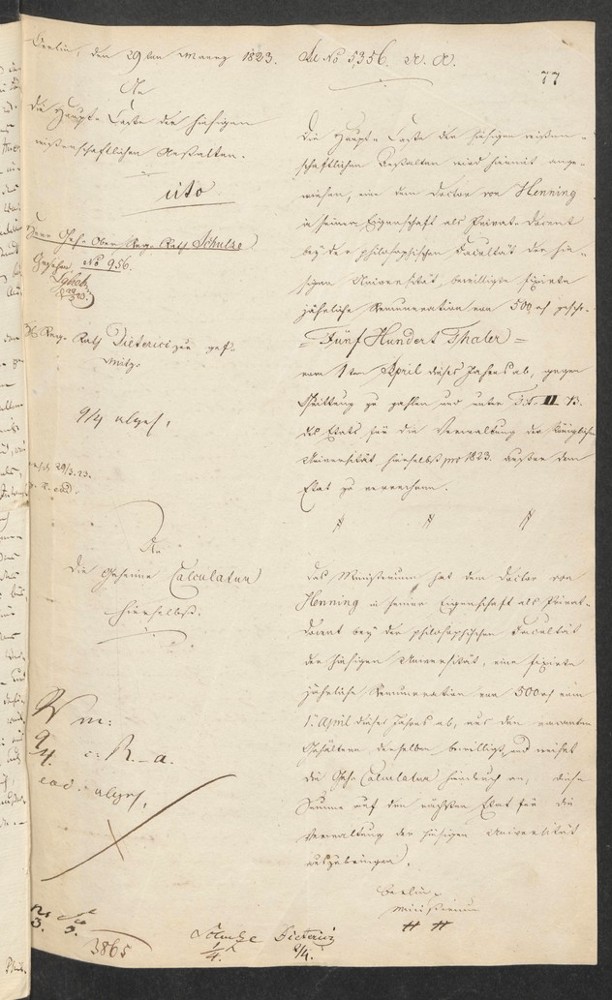 Berlin, den 29ten Maerz 1823.
ad No 5356. R. A.
77
An
die Haupt-Casse der hiesigen
wissenschaftlichen Anstalten.
cito
Herr Geh. Ober Reg. Rath Schulze
Gesehen No 956.
H. Reg. Rath Dieterici zur gef.
Mitz.
9/4 abges.
29/3. 23.
Die Haupt-Casse der hiesigen wissen-
schaftlichen Anstalten wird hiermit ange-
wiesen, eine dem Doctor von Henning
in seiner Eigenschaft als Privat-Docent
bey der philosophischen Facultät der hie-
sigen Universität, bewilligte fixirte
jährliche Remuneration von 500 rh geschr.
= Fünf Hundert Thaler =
vom 1ten April dieses Jahres ab, gegen
Quittung zu zahlen und unter Tit. II
des Etats für die Verwaltung der Königlichen
Universität hierselbst pro 1823. ausser dem
Etat zu verrechnen.
An
die Geheime Calculatur
hierselbst.
Das Ministerium hat dem Doctor von
Henning in seiner Eigenschaft als Privat-
Docent bey der philosophischen Facultät
der hiesigen Universität, eine fixirte
jährliche Remuneration von 500 rh vom
1. April dieses Jahres ab, aus den vacanten
Gehältern derselben bewilligt, und weiset
die Geh. Calculatur hierdurch an, diese
Summe auf den nächsten Etat für die
Verwaltung der hiesigen Universität
auszubringen.
Berlin
Ministerium
9/4.
ead. abges.
3865
Schulze
1/4.
Dieterici